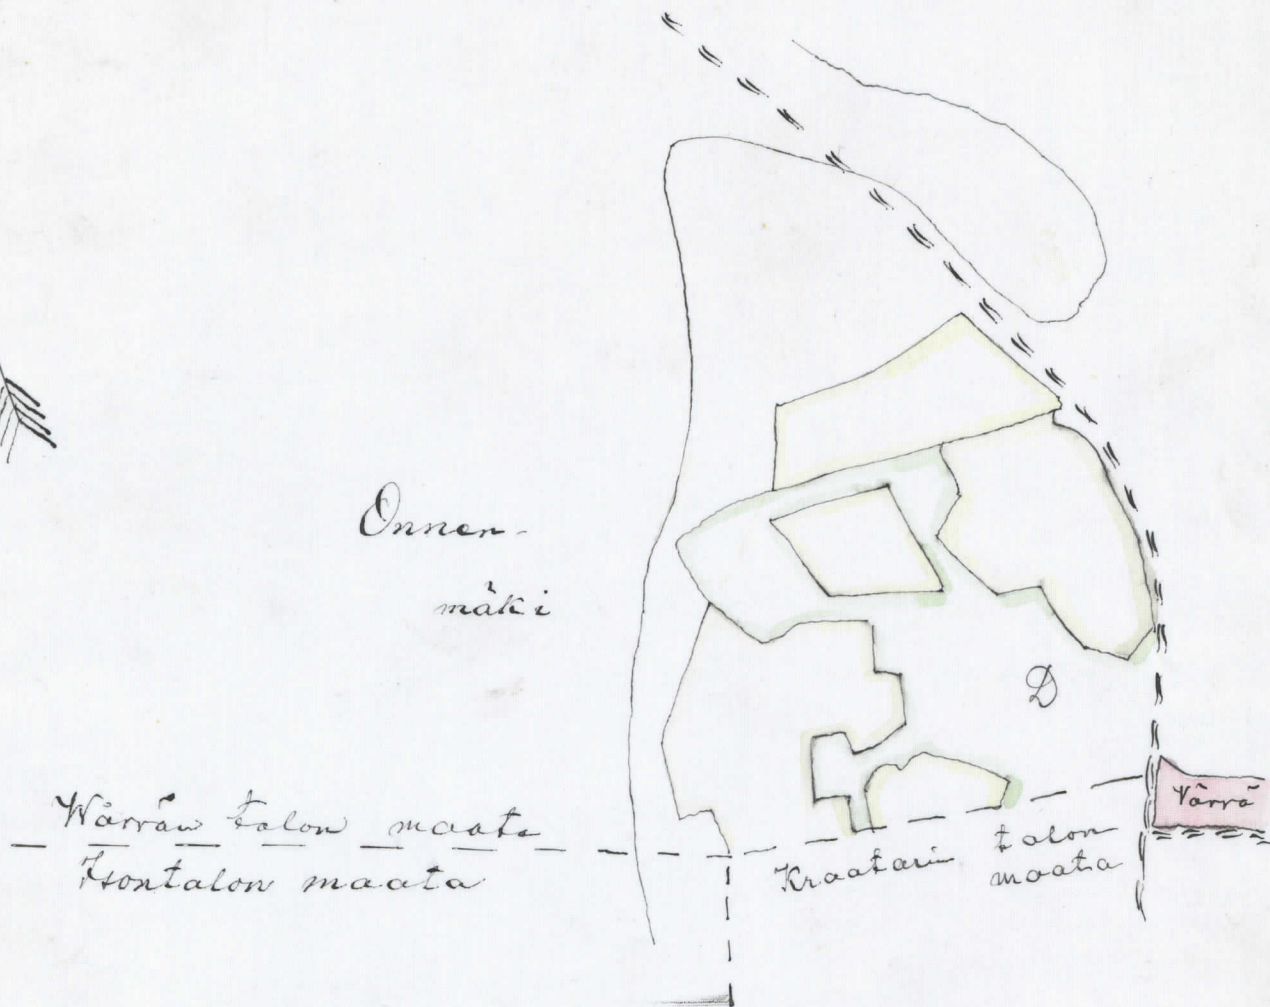 Onnen-
mäki
D
Värrä
Wärrän talon maata
Isontalon maata
Kraatarin talon
maata